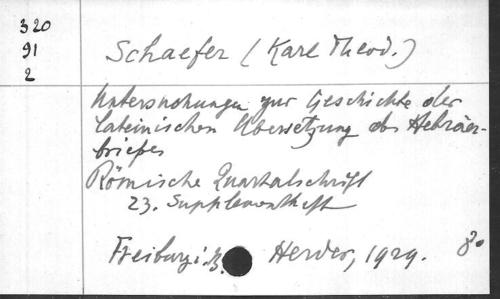 320
91
2
Schaefer (Karl Theod.)
Untersuchungen zur Geschichte der
lateinischen Übersetzung des Hebräer-
briefes
Römische Quartalschrift
23. Supplementheft
Freiburg i. B. Herder, 1929. 8°